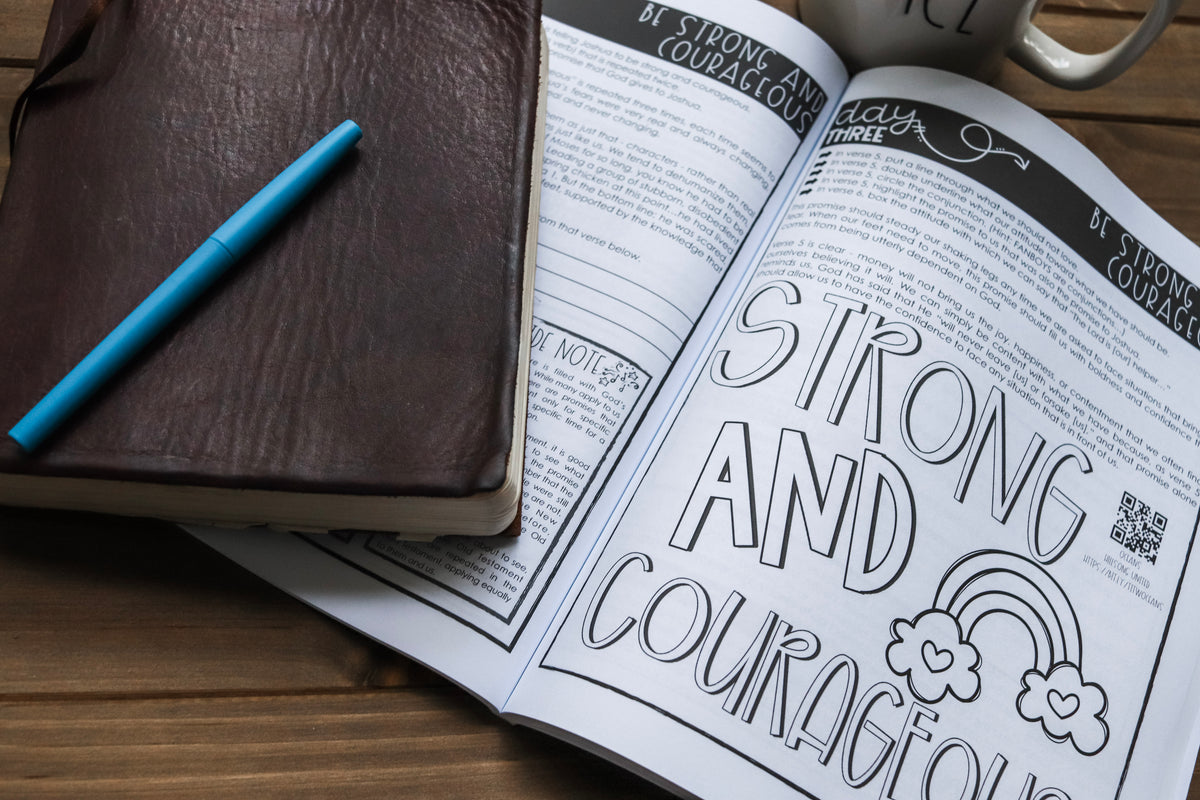 BE STRONG AND
COURAGEOUS
telling Joshua to be strong and courageous.
verb) that is repeated twice.
promise that God gives to Joshua.
is repeated three times, each time seems to
fears were very real and always changing,
real and never changing.
as just that - characters - rather than real
just like us. We tend to dehumanize them,
Moses for so long, you know he had to be
Leading a group of stubborn, disobedient
spring chicken at this point ...he had lived
But the bottom line: he was scared,
feet, supported by the knowledge that
from that verse below.
NOTE
is filled with God's
while many apply to us
are promises that
only for specific
specific time for a
it is good
to see what
the promise
that the
were still
are not
New
Old
about to see,
Old Testament
testament, repeated in the
to them and us. applying equally
day
THREE
BE STRONG
COURAGEO
In verse 5, put a line through what we should not love.
In verse 5, double underline what our attitude toward what we have should be.
In verse 5, circle the conjunction. (Hint: FANBOYS are conjunctions...)
In verse 5, highlight the promise to us that was also the promise to Joshua.
In verse 6, box the attitude with which we can say that "The Lord is [our] helper..."
This promise should steady our shaking legs any time we are asked to face situations that bring
fear. When our feet need to move, this promise should fill us with boldness and confidence that
comes from being utterly dependent on God.
Verse 5 is clear - money will not bring us the joy, happiness, or contentment that we often find
ourselves believing it will. We can simply be content with what we have because, as verse 5
reminds us, God has said that He "will never leave [us] or forsake [us]," and that promise alone
should allow us to have the confidence to face any situation that is in front of us.
STRONG
AND
COURAGEOUS
OCEANS
HILLSONG UNITED